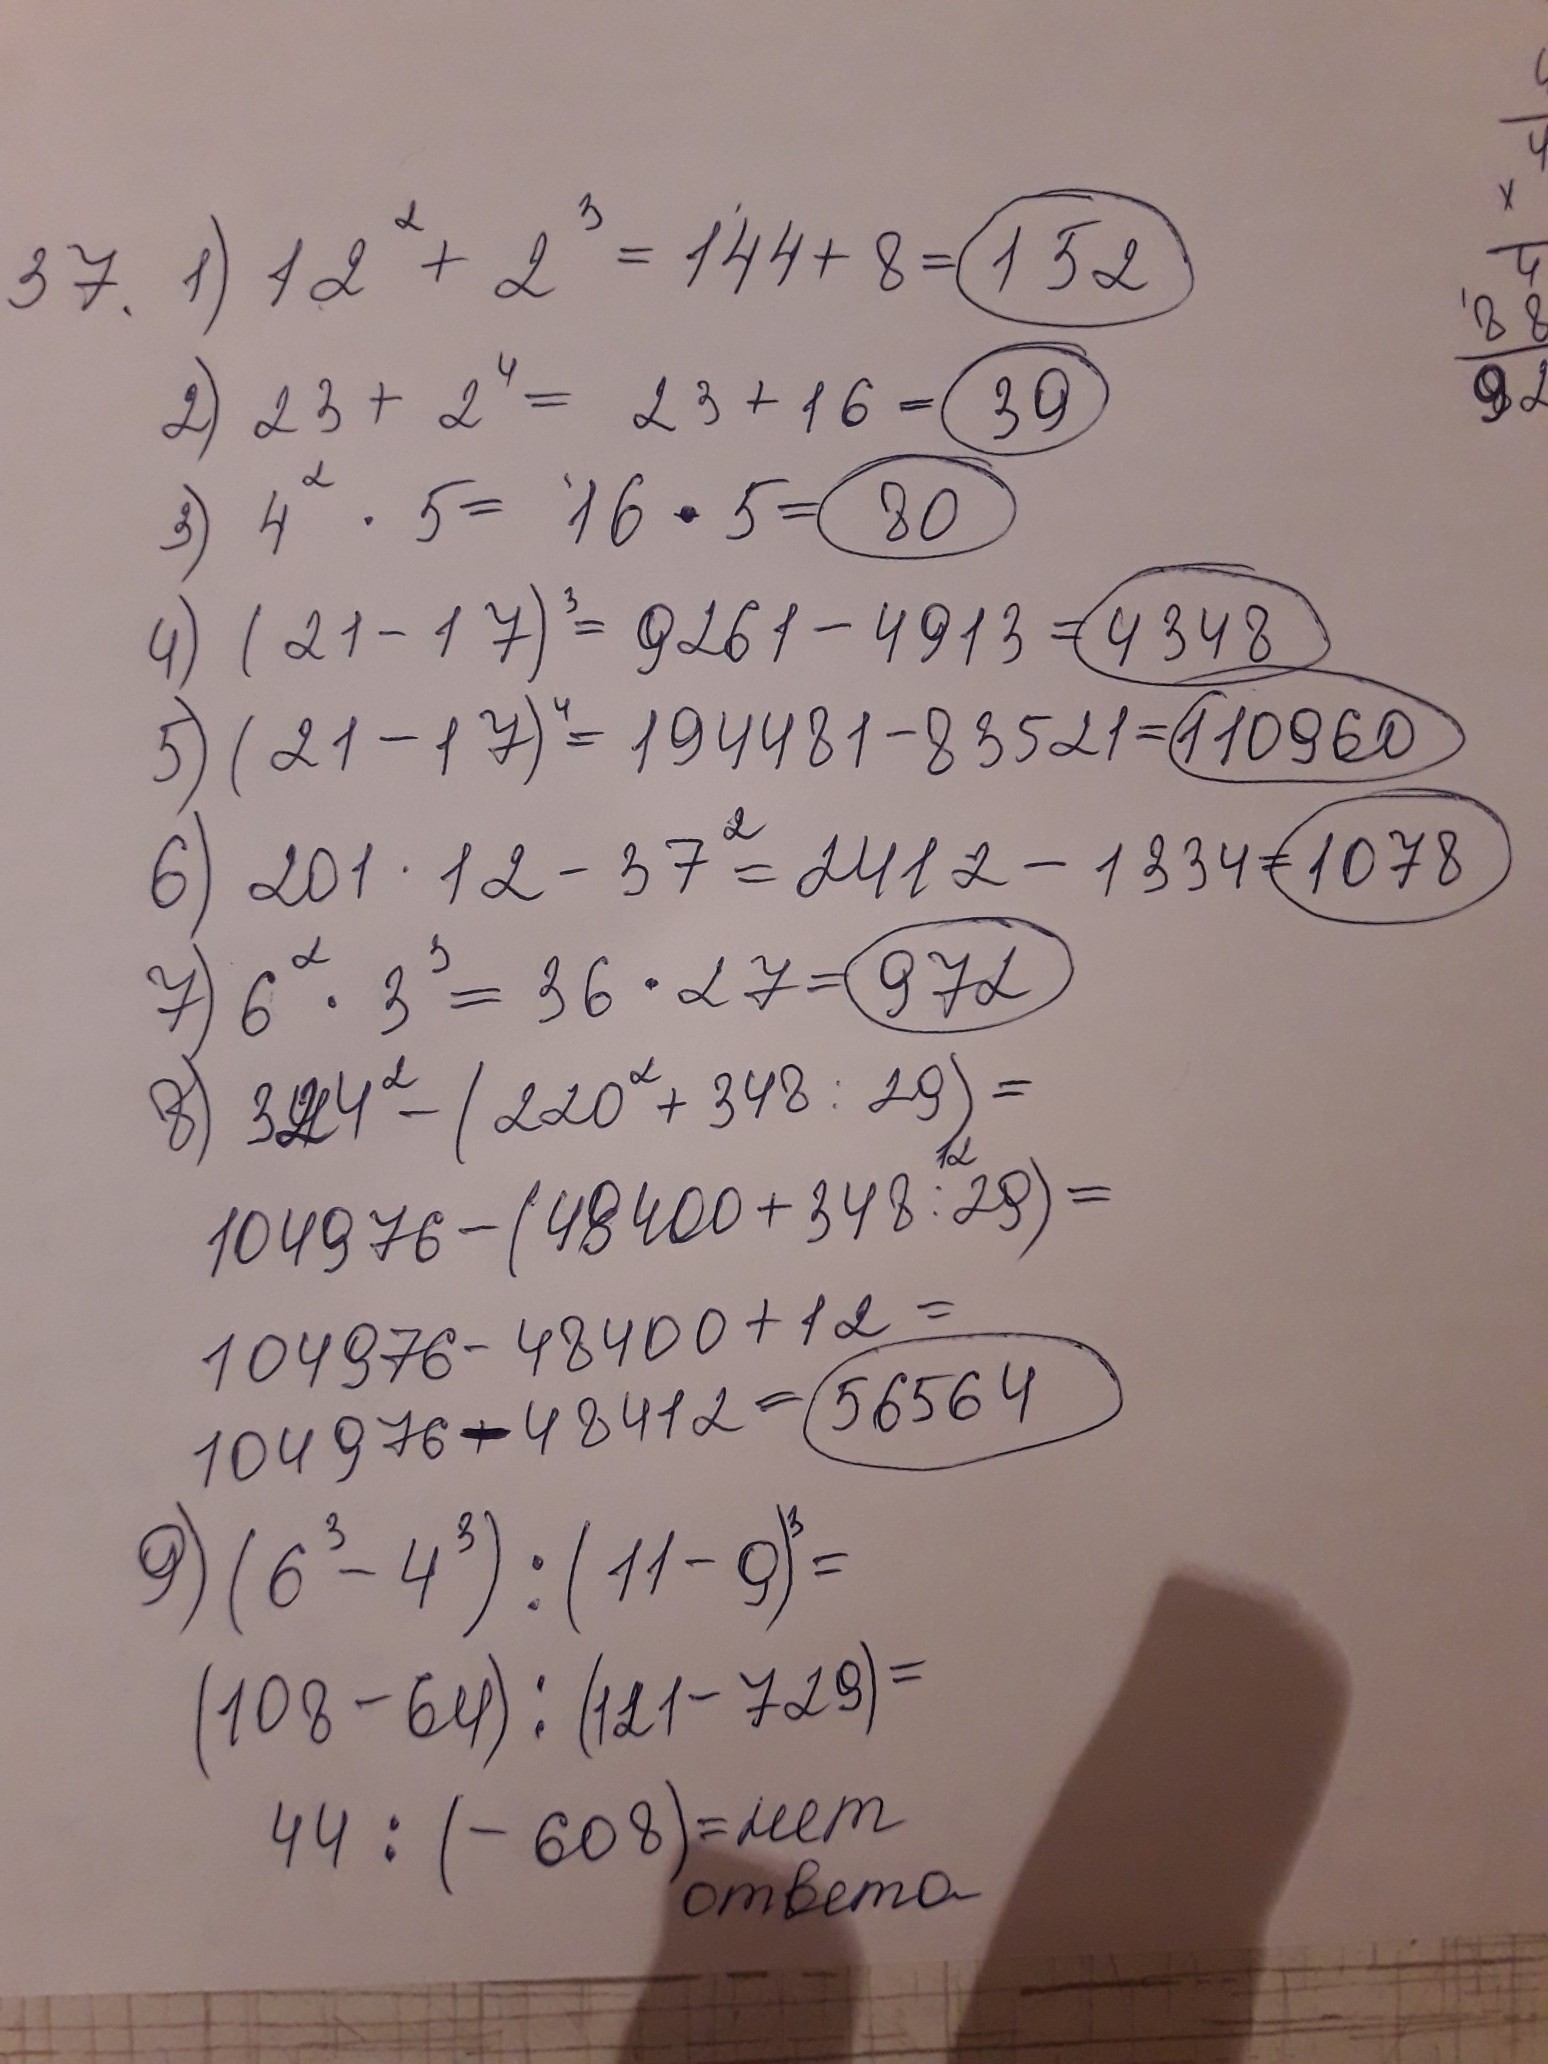 37. 1) 12² + 2³ = 144 + 8 = 152
2) 23 + 2⁴ = 23 + 16 = 39
3) 4² · 5 = 16 · 5 = 80
4) (21 - 17)³ = 9261 - 4913 = 4348
5) (21 - 17)⁴ = 194481 - 83521 = 110960
6) 201 · 12 - 37² = 2412 - 1334 = 1078
7) 6² · 3³ = 36 · 27 = 972
8) 324² - (220² + 348 : 29) =
12
104976 - (48400 + 348 : 29) =
104976 - 48400 + 12 =
104976 - 48412 = 56564
9) (6³ - 4³) : (11 - 9)³ =
(108 - 64) : (121 - 729) =
44 : (- 608) = нет
ответа
4
4
x
4
88
92